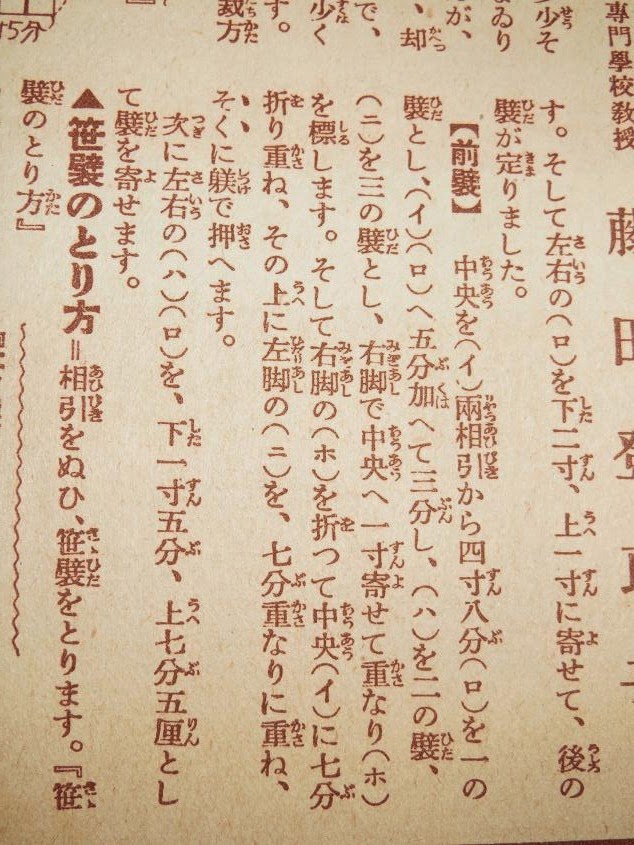 專門學校教授
藤田
す。そして左右の(ロ)を下二寸、上一寸に寄せて、後の
襞が定りました。
【前襞】 中央を(イ)兩相引から四寸八分(ロ)を一の
襞とし、(イ)(ロ)へ五分加へて三分し、(ハ)を二の襞、
(ニ)を三の襞とし、右脚で中央へ一寸寄せて重なり(ホ)
を標します。そして右脚の(ホ)を折つて中央(イ)に七分
折り重ね、その上に左脚の(ニ)を、七分重なりに重ね、
、、そくに躾で押へます。
次に左右の(ハ)(ロ)を、下一寸五分、上七分五厘とし
て襞を寄せます。
▲笹襞のとり方=相引をぬひ、笹襞をとります。『笹
襞のとり方』
多少そ
まゐり
が、却
で、
少く
す。
裁方
』
15分